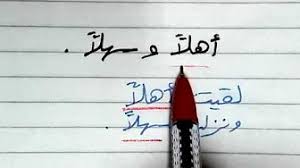 أهلاً و سهلاً .
لقيت أهلاً
سهلاً .